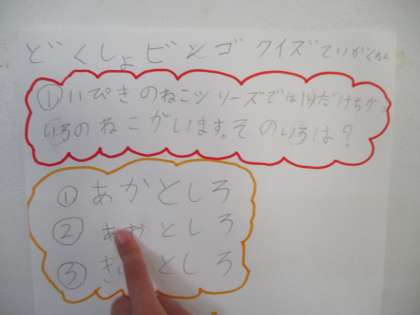 どくしょビンゴ クイズていがくねん
①11ぴきのねこシリーズでは1ぴきだけちがう
いろのねこがいます。そのいろは？
①あかとしろ
②あおとしろ
③き としろ